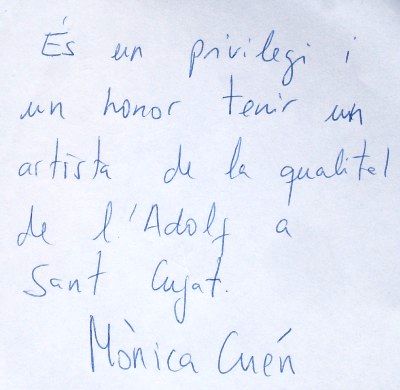 És un privilegi i
un honor tenir un
artista de la qualitat
de l'Adolf a
Sant Cugat.
Mònica Cuén